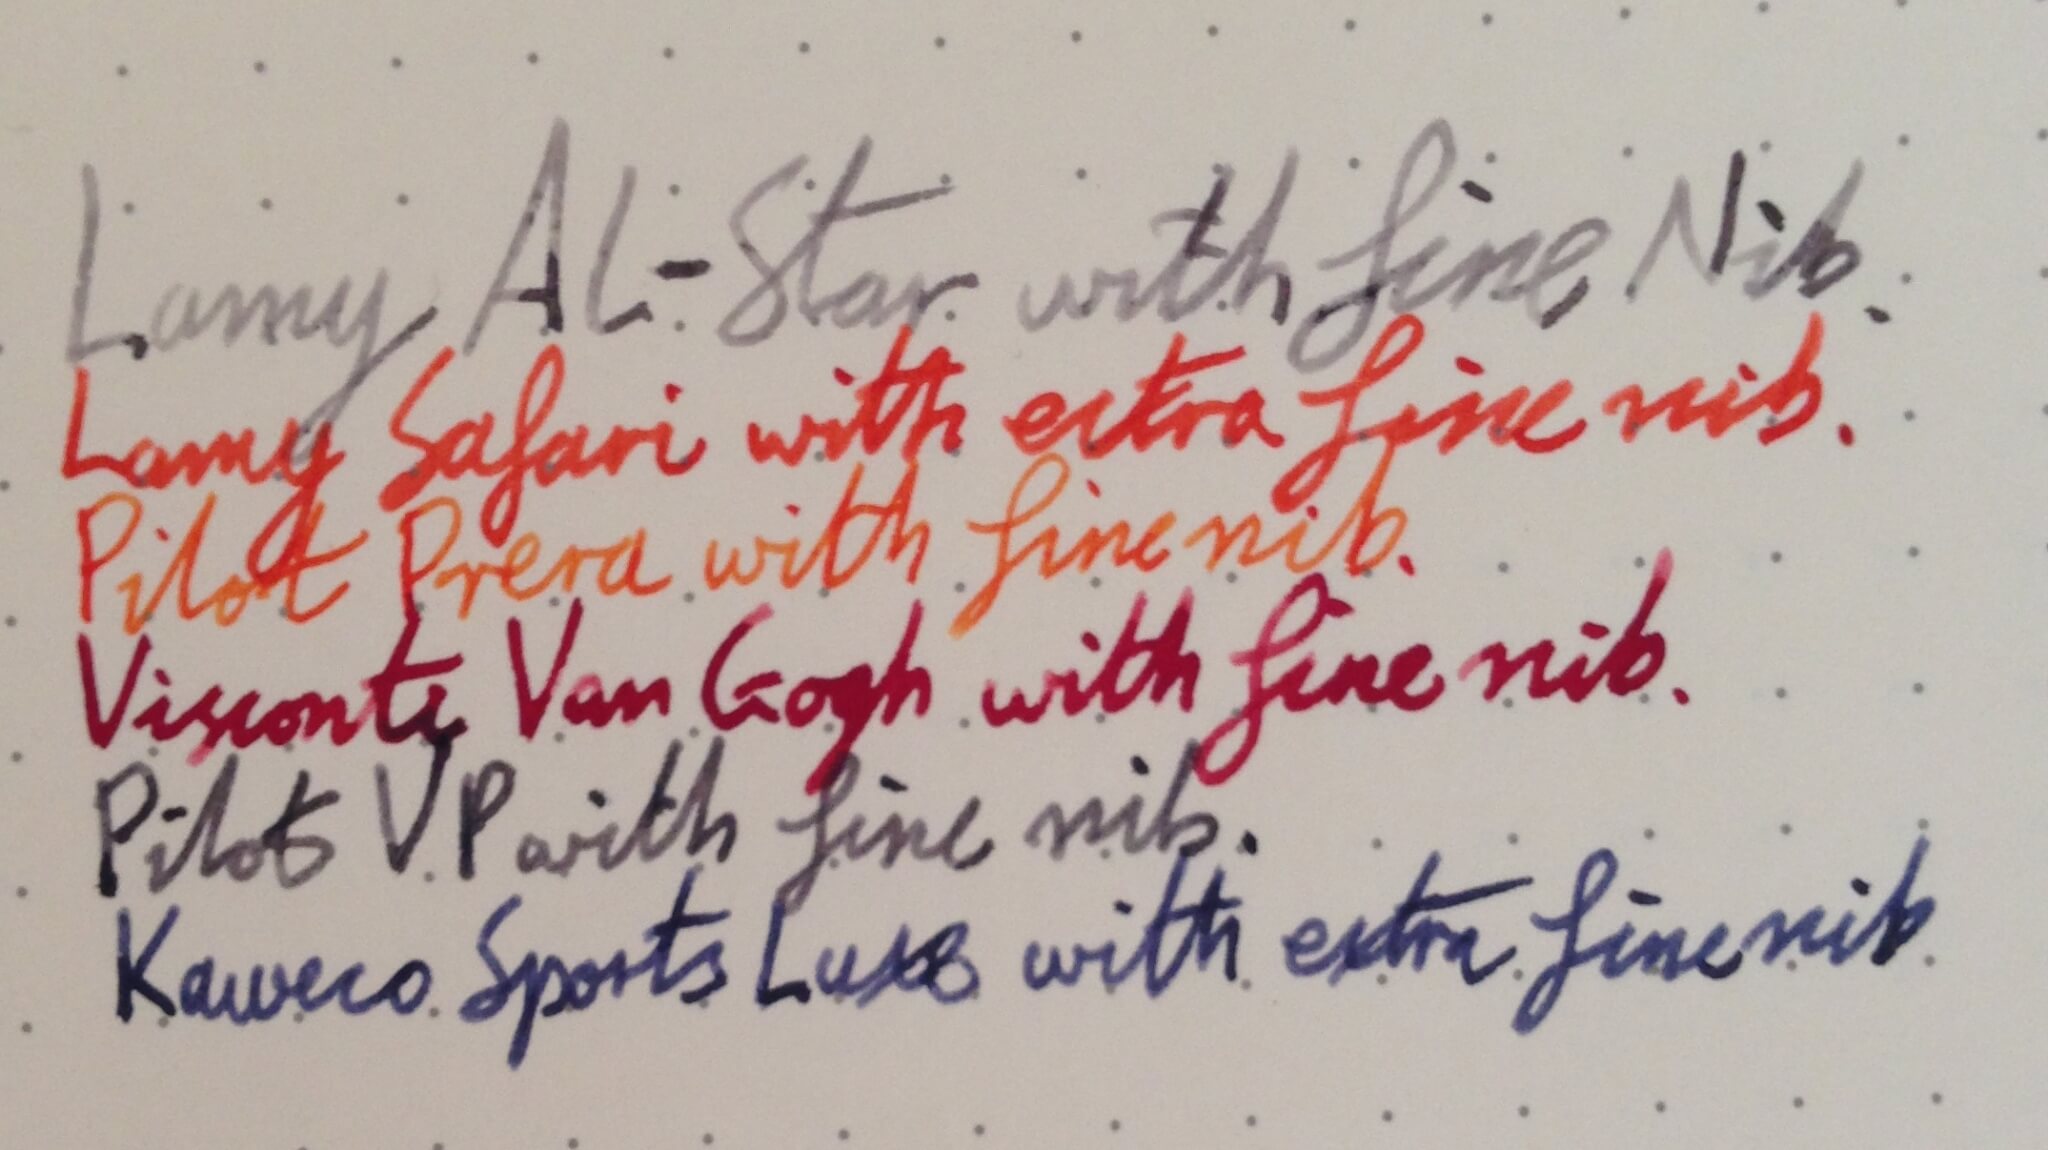 Lamy AL-Star with fine Nib.
Lamy Safari with extra fine nib.
Pilot Prera with fine nib.
Visconti Van Gogh with fine nib.
Pilot VP with fine nib.
Kaweco Sports Luxe with extra fine nib